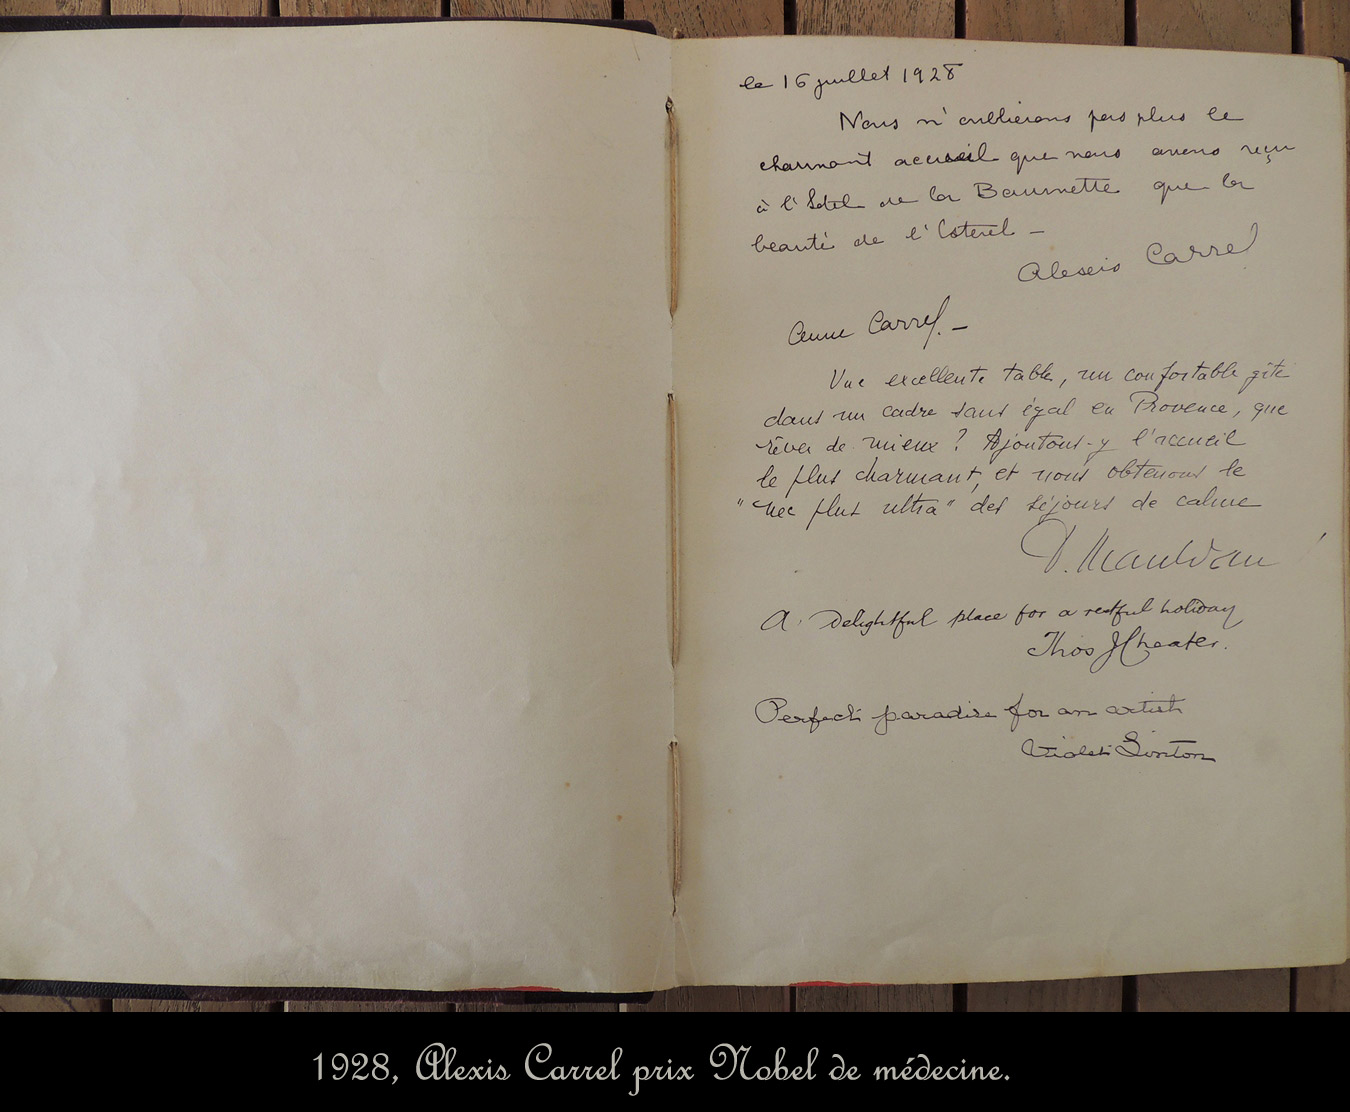 le 16 juillet 1928
Nous n'oublierons pas plus le
charmant accueil que nous avons reçu
à l'hôtel de la Baumette que la
beauté de l'Esterel –
Alexis Carrel
Anne Carrel. –
Une excellente table, un confortable gîte
dans un cadre sans égal en Provence, que
rêver de mieux ? Ajoutons-y l'accueil
le plus charmant, et nous obtenons le
"nec plus ultra" des séjours de calme
A Delightful place for a restful holiday
Thos J Cheater.
Perfect paradise for an artist
Violet Linton
1928, Alexis Carrel prix Nobel de médecine.